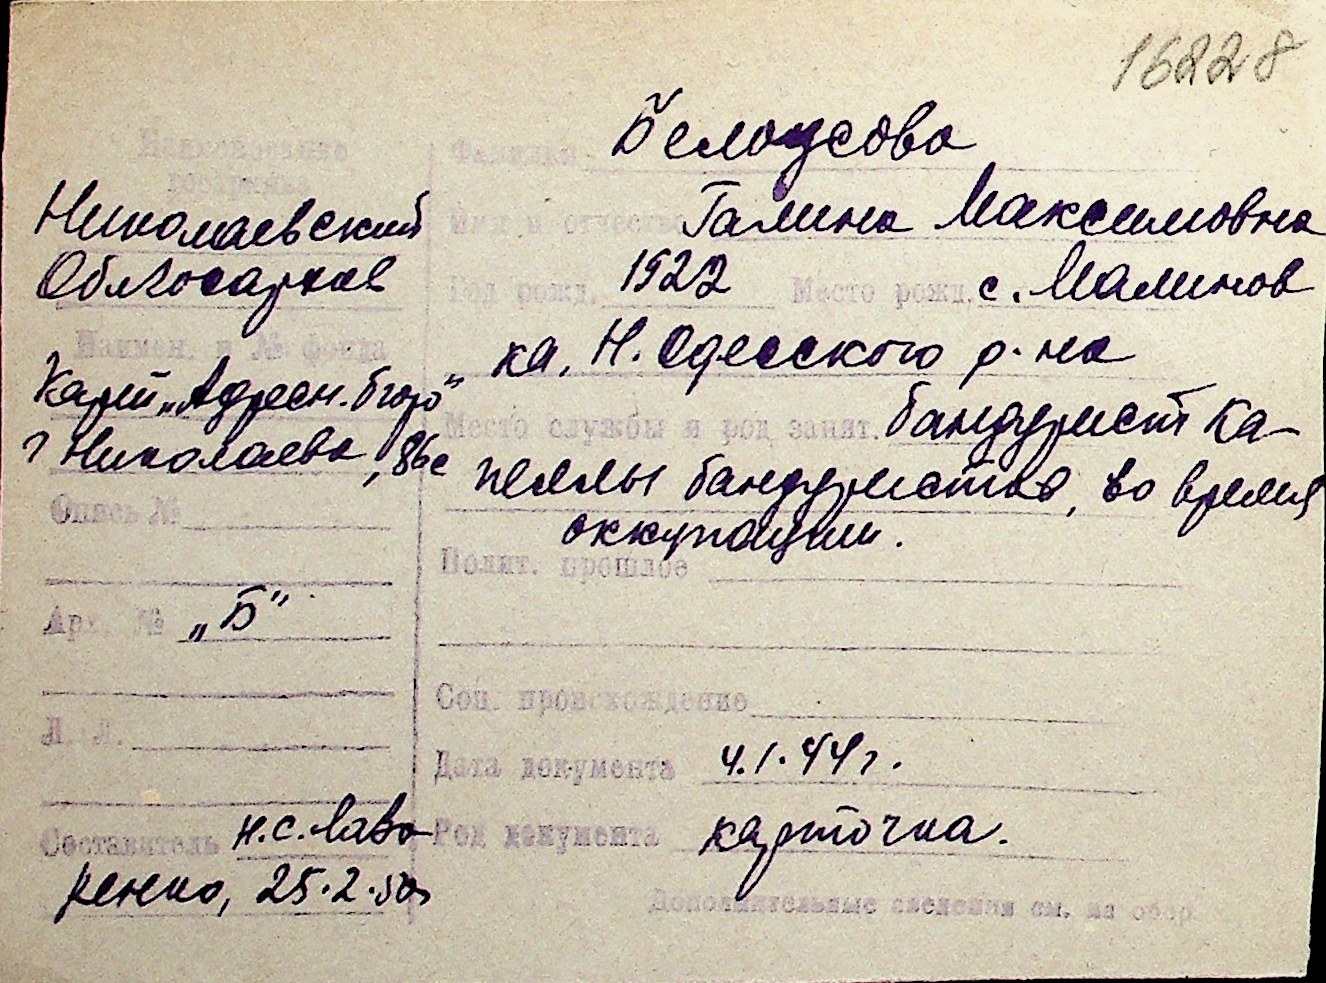 16228
Наименование
госархива
Николаевский
Облгосархив
Наимен. и № фонда
Карт. „Адресн. бюро"
г Николаева, 86с
Опись №
Арх. № „Б"
Л. Л.
Составитель Н.С. Лаво
ренко, 25.2.50г
Фамилия Белоусова
Имя и отчество Галина Максимовна
Год рожд. 1922 Место рожд. с. Малинов
ка, Н. Одесского р-на
Место службы и род занят. бандурист Ка-
пеллы бандуристов, во время
оккупации.
Полит. прошлое
Соц. происхождение
Дата документа 4.1.44г.
Род документа карточка.
Дополнительные сведения см. на обор